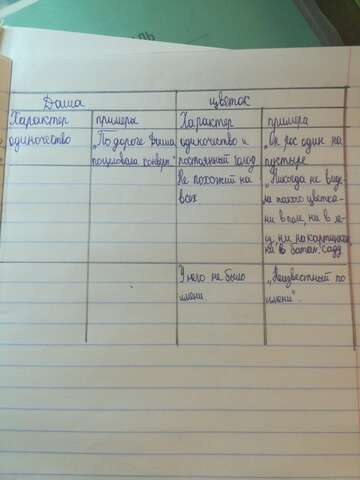 Даша
цветок
Характер
примеры
Характер
примера
одиночество
„По дороге Даша
поцеловала конверт"
одиночиство и
постоянный голод
„он рос один на
пустыре
Не похожий на
всех
„Никогда не виде
ла такого цветка-
ни в поле, ни в ле
су, ни на картинках
ни в ботан. саду
У него не было
имени
„Неизвестный по
имени".